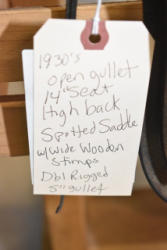 1930's
open gullet
14" Seat
High back
Spotted Saddle
w/ Wide Wooden
Stirrups
Dbl Rigged
5" gullet